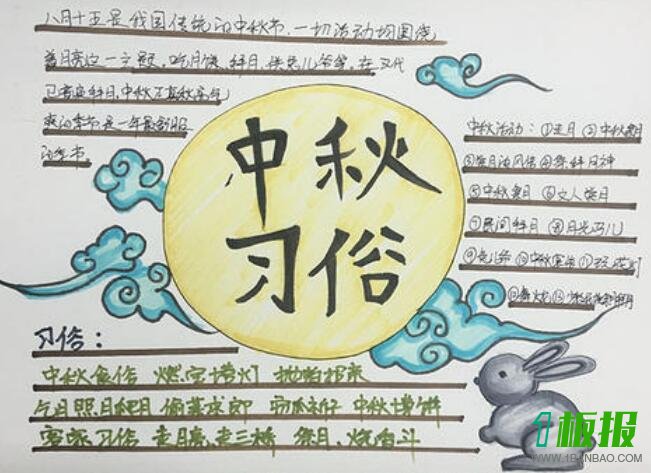 八月十五是我国传统的中秋节，一切活动均围绕
着月亮这一主题，吃月饼、拜月、供兔儿爷等，在汉代
已有拜月，中秋正直秋高气
爽的季节是一年最舒服
的季节
中秋
习俗
中秋活动：①走月 ②中秋
③ ④祭拜月神
⑤中秋 ⑥文人赏月
⑦民间拜月 ⑧月光马儿
⑨兔儿爷 ⑩中秋宴俗 ⑪玩花灯
⑫ ⑬
习俗：
中秋食俗 燃宝塔灯 抛帕招亲
片月照月爬月 偷菜求郎 中秋博饼
客家习俗 走月亮、走三桥 祭月、烧香斗
1板报
WWW.1BANBAO.COM